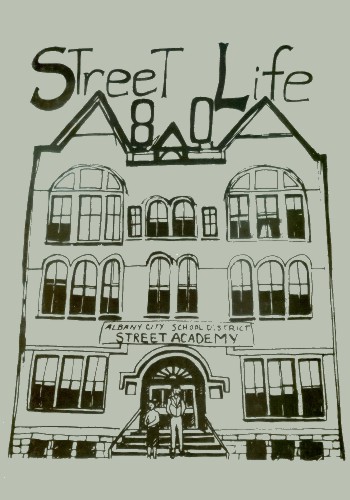 Street Life
80
ALBANY CITY SCHOOL DISTRICT
STREET ACADEMY